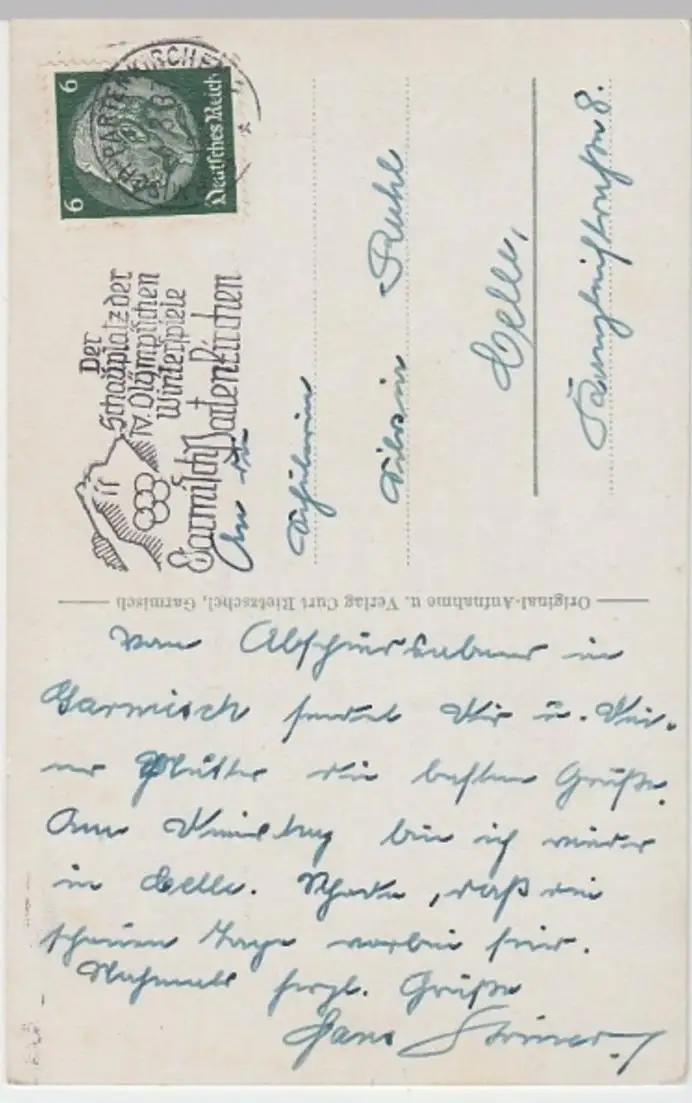 GARMISCH-PARTENKIRCHEN
6 6
Deutsches Reich
Der
Schauplatz der
IV. Olympischen
Winterspiele
Garmisch-Partenkirchen
An die
Schülerin
Ruhl
Celle,
8.
Original-Aufnahme u. Verlag Curt Rietzschel, Garmisch
Vom Abschiedsabend in
Garmisch sendet Dir u. Dei-
ner Mutter die besten Grüße.
Am Dienstag bin ich wieder
in Celle. Schade, daß die
schönen Tage vorbei sind.
Nochmals herzl. Grüße
Hans